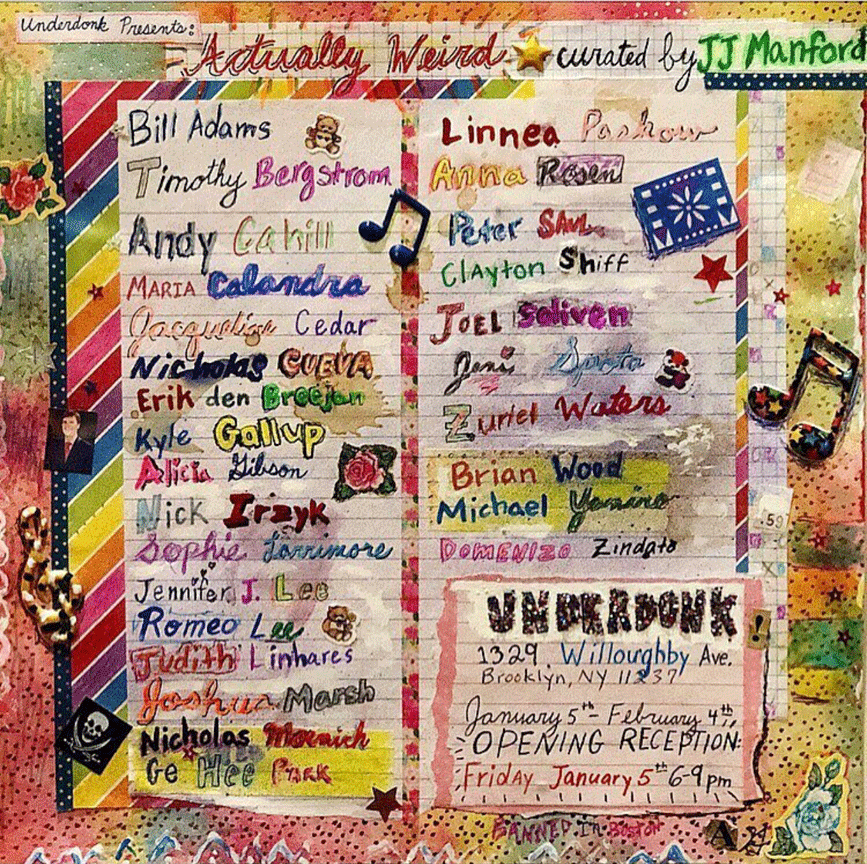 Underdonk Presents:
Actually Weird curated by JJ Manford
Bill Adams
Timothy Bergstrom
Andy Cahill
MARIA Calandra
Jacqueline Cedar
Nicholas CUEVA
Erik den Breejen
Kyle Gallup
Alicia Gibson
Nick Irzyk
Sophie Larrimore
Jennifer J. Lee
Romeo Lee
Judith Linhares
Joshua Marsh
Nicholas Moenich
Ge Hee PARK
Linnea Paskow
Anna Rosen
Peter SAUL
Clayton Shiff
JOEL Soliven
Jeni Spota
Zuriel Waters
Brian Wood
Michael
DOMENICO Zindato
.59
UNDERDONK
!
1329 Willoughby Ave.
Brooklyn, NY 11237
January 5th - February 4th,
OPENING RECEPTION:
Friday January 5th 6-9pm
BANNED IN BOSTON
A